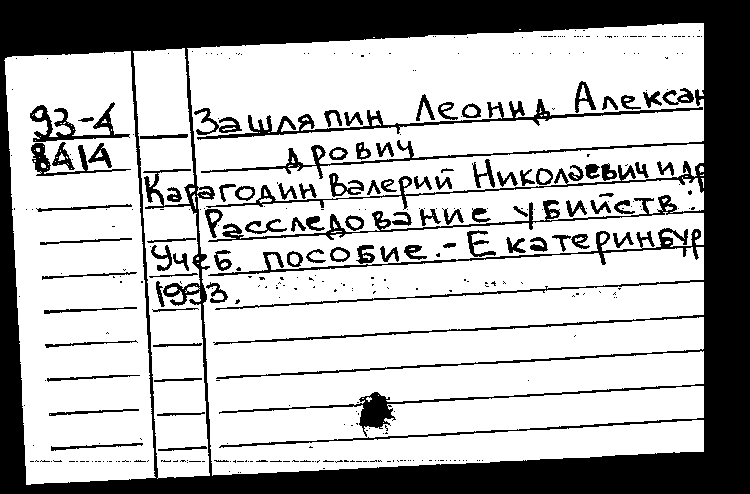 93-4 Зашляпин, Леонид Алексан
8414 дрович
Карагодин, Валерий Николаевич и др
Расследование убийств:
Учеб. пособие.- Екатеринбур
1993.